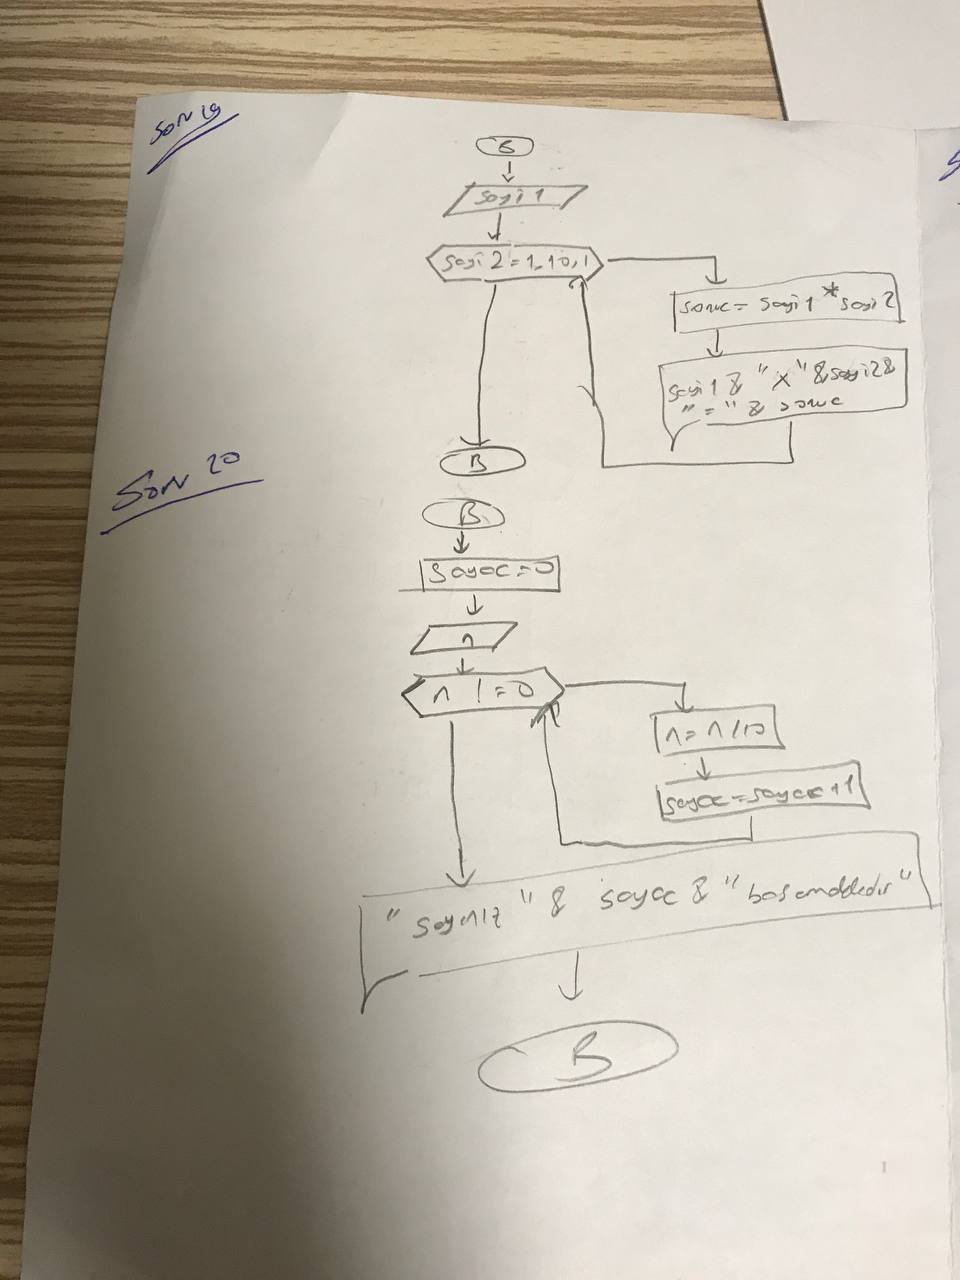 Soru 19
B
sayi 1
sayi 2 = 1, 10, 1
sonuc = sayi 1 * sayi 2
sayi 1 & "x" & sayi 2 &
"=" & sonuc
B
Soru 20
B
Sayac = 0
n
n != 0
n = n / 10
sayac = sayac + 1
"sayınız" & sayac & "basamaklıdır"
B